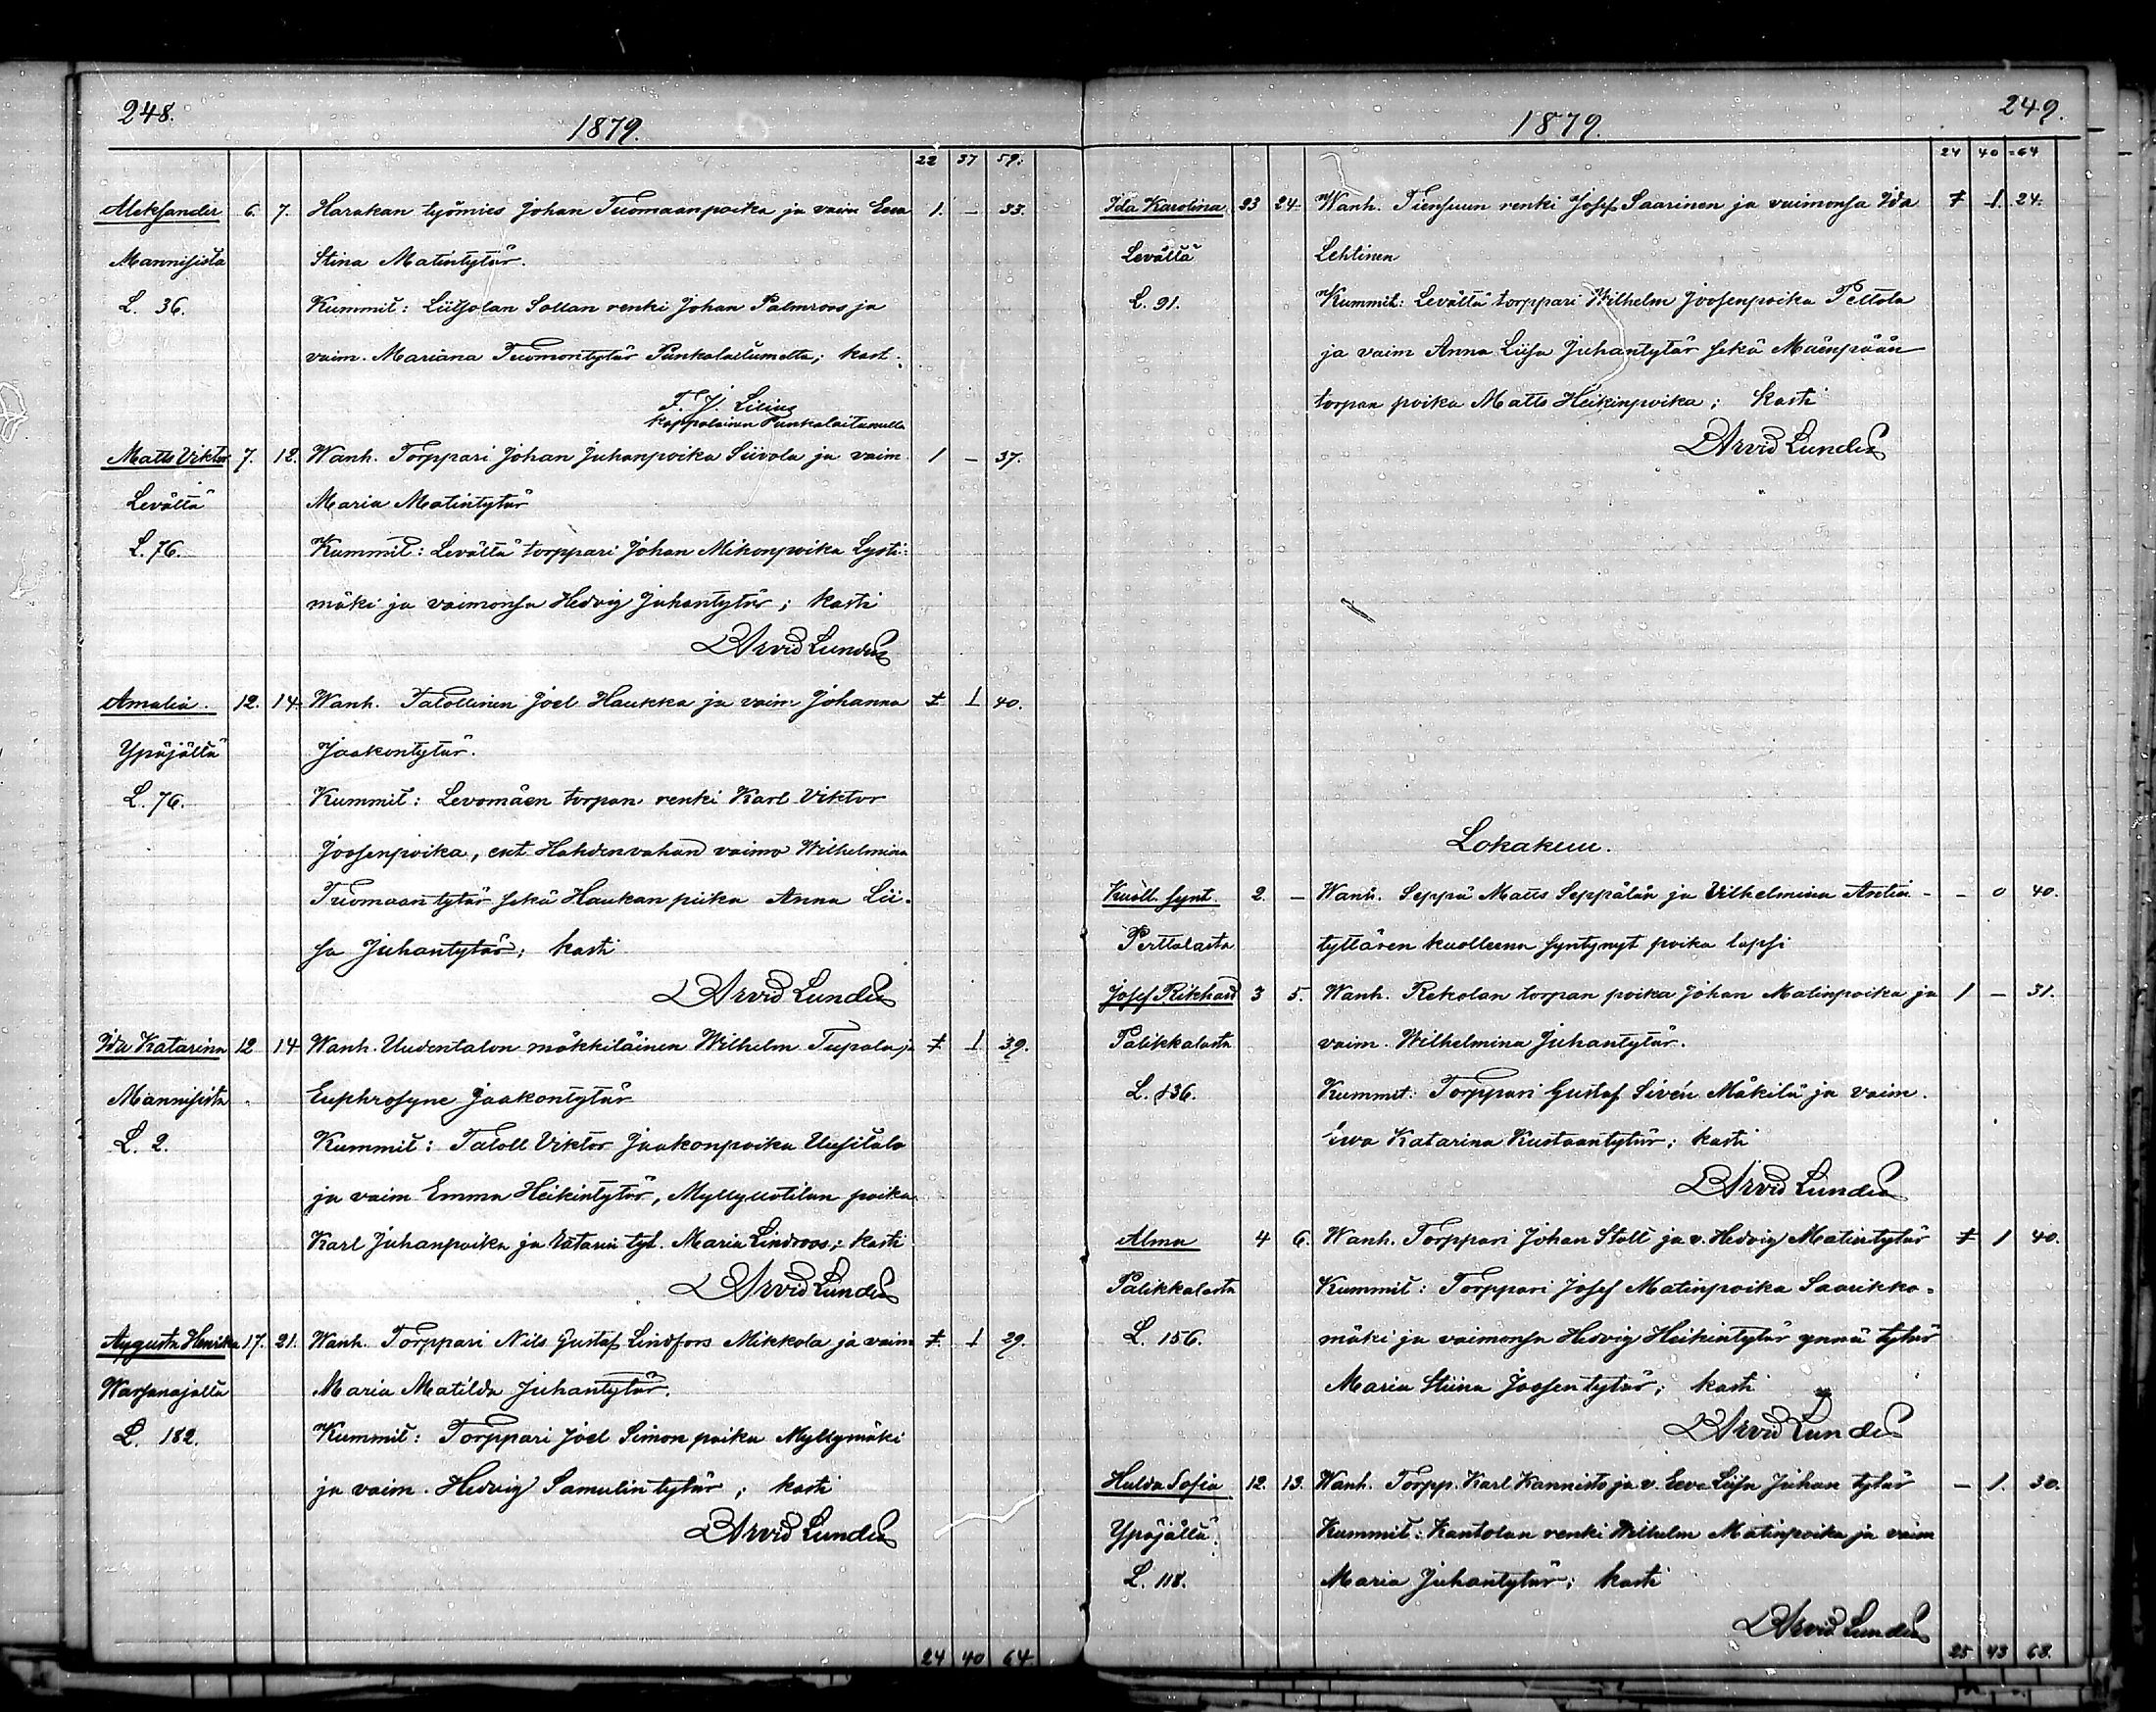 248.
1879.
22 37 59.
Aleksander 6. 7. Harakan työmies Johan Tuomaanpoika ja vaim Eeva 1. — 33.
Mannisista Stina Matintytär.
L. 36. Kummit: Liitsolan Sallan renki Johan Palmroos ja
vaim. Mariana Tuomontytär Punkalaitumelta; kast.
F. J. Lilius
kappalainen Punkalaitumella
Matts Viktor 7. 12. Wanh. Torppari Johan Juhanpoika Siivola ja vaim 1 — 37.
Levältä Maria Matintytär
L. 76. Kummit: Levältä torppari Johan Mikonpoika Lysti-
mäki ja vaimonsa Hedvig Juhantytär; kasti
Arvid Lundén
Amalia. 12. 14. Wanh. Talollinen Joel Haukka ja vaim Johanna ≠ 1 40.
Ypäjältä Jaakontytär.
L. 76. Kummit: Levomäen torpan renki Karl Viktor
Joosenpoika, ent. Hahdenvahan vaimo Wilhelmina
Tuomaantytär sekä Haukan piika Anna Lii-
sa Juhantytär; kasti
Arvid Lundén
Ida Katarina 12 14 Wanh. Uudentalon mökkiläinen Wilhelm Tupala ja ≠ 1 39.
Mannisista Euphrosyne Jaakontytär
L. 2. Kummit: Taloll Viktor Jaakonpoika Uusitalo
ja vaim Emma Heikintytär, Myllyllotilan poika
Karl Juhanpoika ja tyt. Maria Lindroos; kasti
Arvid Lundén
Augusta Henrika 17. 21. Wanh. Torppari Nils Gustaf Lindfors Mikkola ja vaim ≠ 1 29.
Warsanojalta Maria Matilda Juhantytär.
L. 182. Kummit: Torppari Joel Simonpoika Myllymäki
ja vaim. Hedvig Samulintytär; kasti
Arvid Lundén
24 40 64.
249.
1879.
24 40 =64
Ida Karolina 23 24. Wanh. Tiensuun renki Josef Saarinen ja vaimonsa Ida ≠ 1. 24.
Levältä Lehtinen
L. 91. Kummit: Levältä torppari Wilhelm Joosenpoika Peltola
ja vaim Anna Liisa Juhantytär sekä Mäenpään
torpan poika Matts Heikinpoika; kasti
Arvid Lundén
Lokakuu.
Kuoll. synt. 2. — Wanh. Seppä Matts Seppälän ja Vilhelmina Antin- — 0 40.
Perttalasta tyttären kuolleena syntynyt poika lapsi
Josef Rikhard 3 5. Wanh. Rekolan torpan poika Johan Matinpoika ja 1 — 31.
Palikkalasta vaim. Wilhelmina Juhantytär.
L. 136. Kummit: Torppari Gustaf Sivén Mäkilä ja vaim.
Ewa Katarina Kustaantytär; kasti
Arvid Lundén
Alma 4 6. Wanh. Torppari Johan Stoll ja v. Hedvig Matintytär ≠ 1 40.
Palikkalasta Kummit: Torppari Josef Matinpoika Saarikko-
L. 156. mäki ja vaimonsa Hedvig Heikintytär ynnä tytär
Maria Stiina Joosentytär; kasti
Arvid Lundén
Hulda Sofia 12. 13. Wanh. Torpp. Karl Kannisto ja v. Eeva Liisa Juhantytär — 1. 30.
Ypäjältä. Kummit: Kantolan renki Wilhelm Matinpoika ja vaim
L. 118. Maria Juhantytär; kasti
Arvid Lundén
25 43 68.